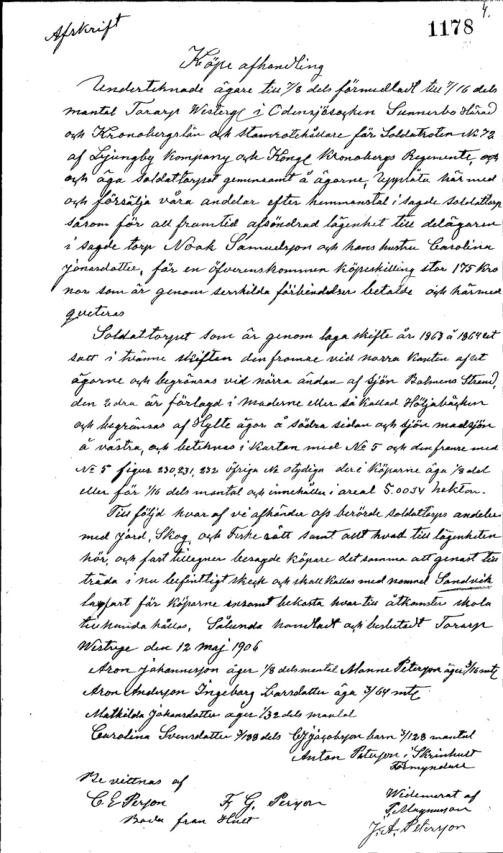 4.
1178
Afskrift
Köpe afhandling
Undertecknade ägare till 7/8 dels förmedladt till 7/16 dels
mantal Torarp Westerg i Odensjösocken Sunnerbo Härad
och Kronobergslän och Stamrotehållare för Soldatroten No 72
af Ljungby Kompany och Kongl Kronobergs Regemente, och
och äga Soldattorpet gemensamt å ägorne, Upplåta härmed
och försälja våra andelar efter hemmanstal i sagde soldattorp
såsom för all framtid afsöndrad lägenhet till delägaren
i sagde torp Noak Samuelsson och hans hustru Carolina
Jonasdotter, för en öfverenskommen köpeskilling stor 175 Kro
nor som är genom serrkilda förbindelser betalde och härmed
qviteras
Soldattorpet som är genom laga skifte år 1863 å 1864 ut
satt i tvänne skiften den framae vid norra kanten af
ägorne och begränsas vid norra ändan af sjön Bolmens Strand,
den 2dra är förlagd i Maderne eller så kallad Höljabäcken
och begränsas af Hylte ägor å södra sidan och sjön madsjön
å västra, och betecknas i Kartan med No 5 och den franre med
No 5 figur 230,231,232 öfriga No otydiga deri köparne äga 1/8 del
eller för 1/16 dels mantal och innehåller i areal 5.0054 hektar.
Till följd hvaraf vi afhänder oss berörde soldattorps andelar
med jord, Skog och Fiske rätt samt allt hvad till lägenheten
hör, och fast tillegner besagde köpare det samma att genast till
träda i nu befintligt skick och skall kallas med namnet Sandvik
lagfart för köparne ensamt bekosta hvar till åtkomster skola
tillhanda hållas, Sålunda handladt och beslutadt Torarp
Westrege den 12 maj 1906
Aron Johannesson äger 1/8 dels mantal Manne Peterson äger 3/16 mtl
Aron Anderson Ingeborg Larsdotter äga 3/64 mtl
Mathilda Johansdotter äger 1/32 dels mantal
Carolina Svensdotter dels Jacobsson barn 3/128 mantal
Anton Peterson i Skrinhult
Förmyndare
Bevittnas af
C. E. Person F. G. Person
Boda från Hult
Widimerat af
Magnusson
J. A. Peterson